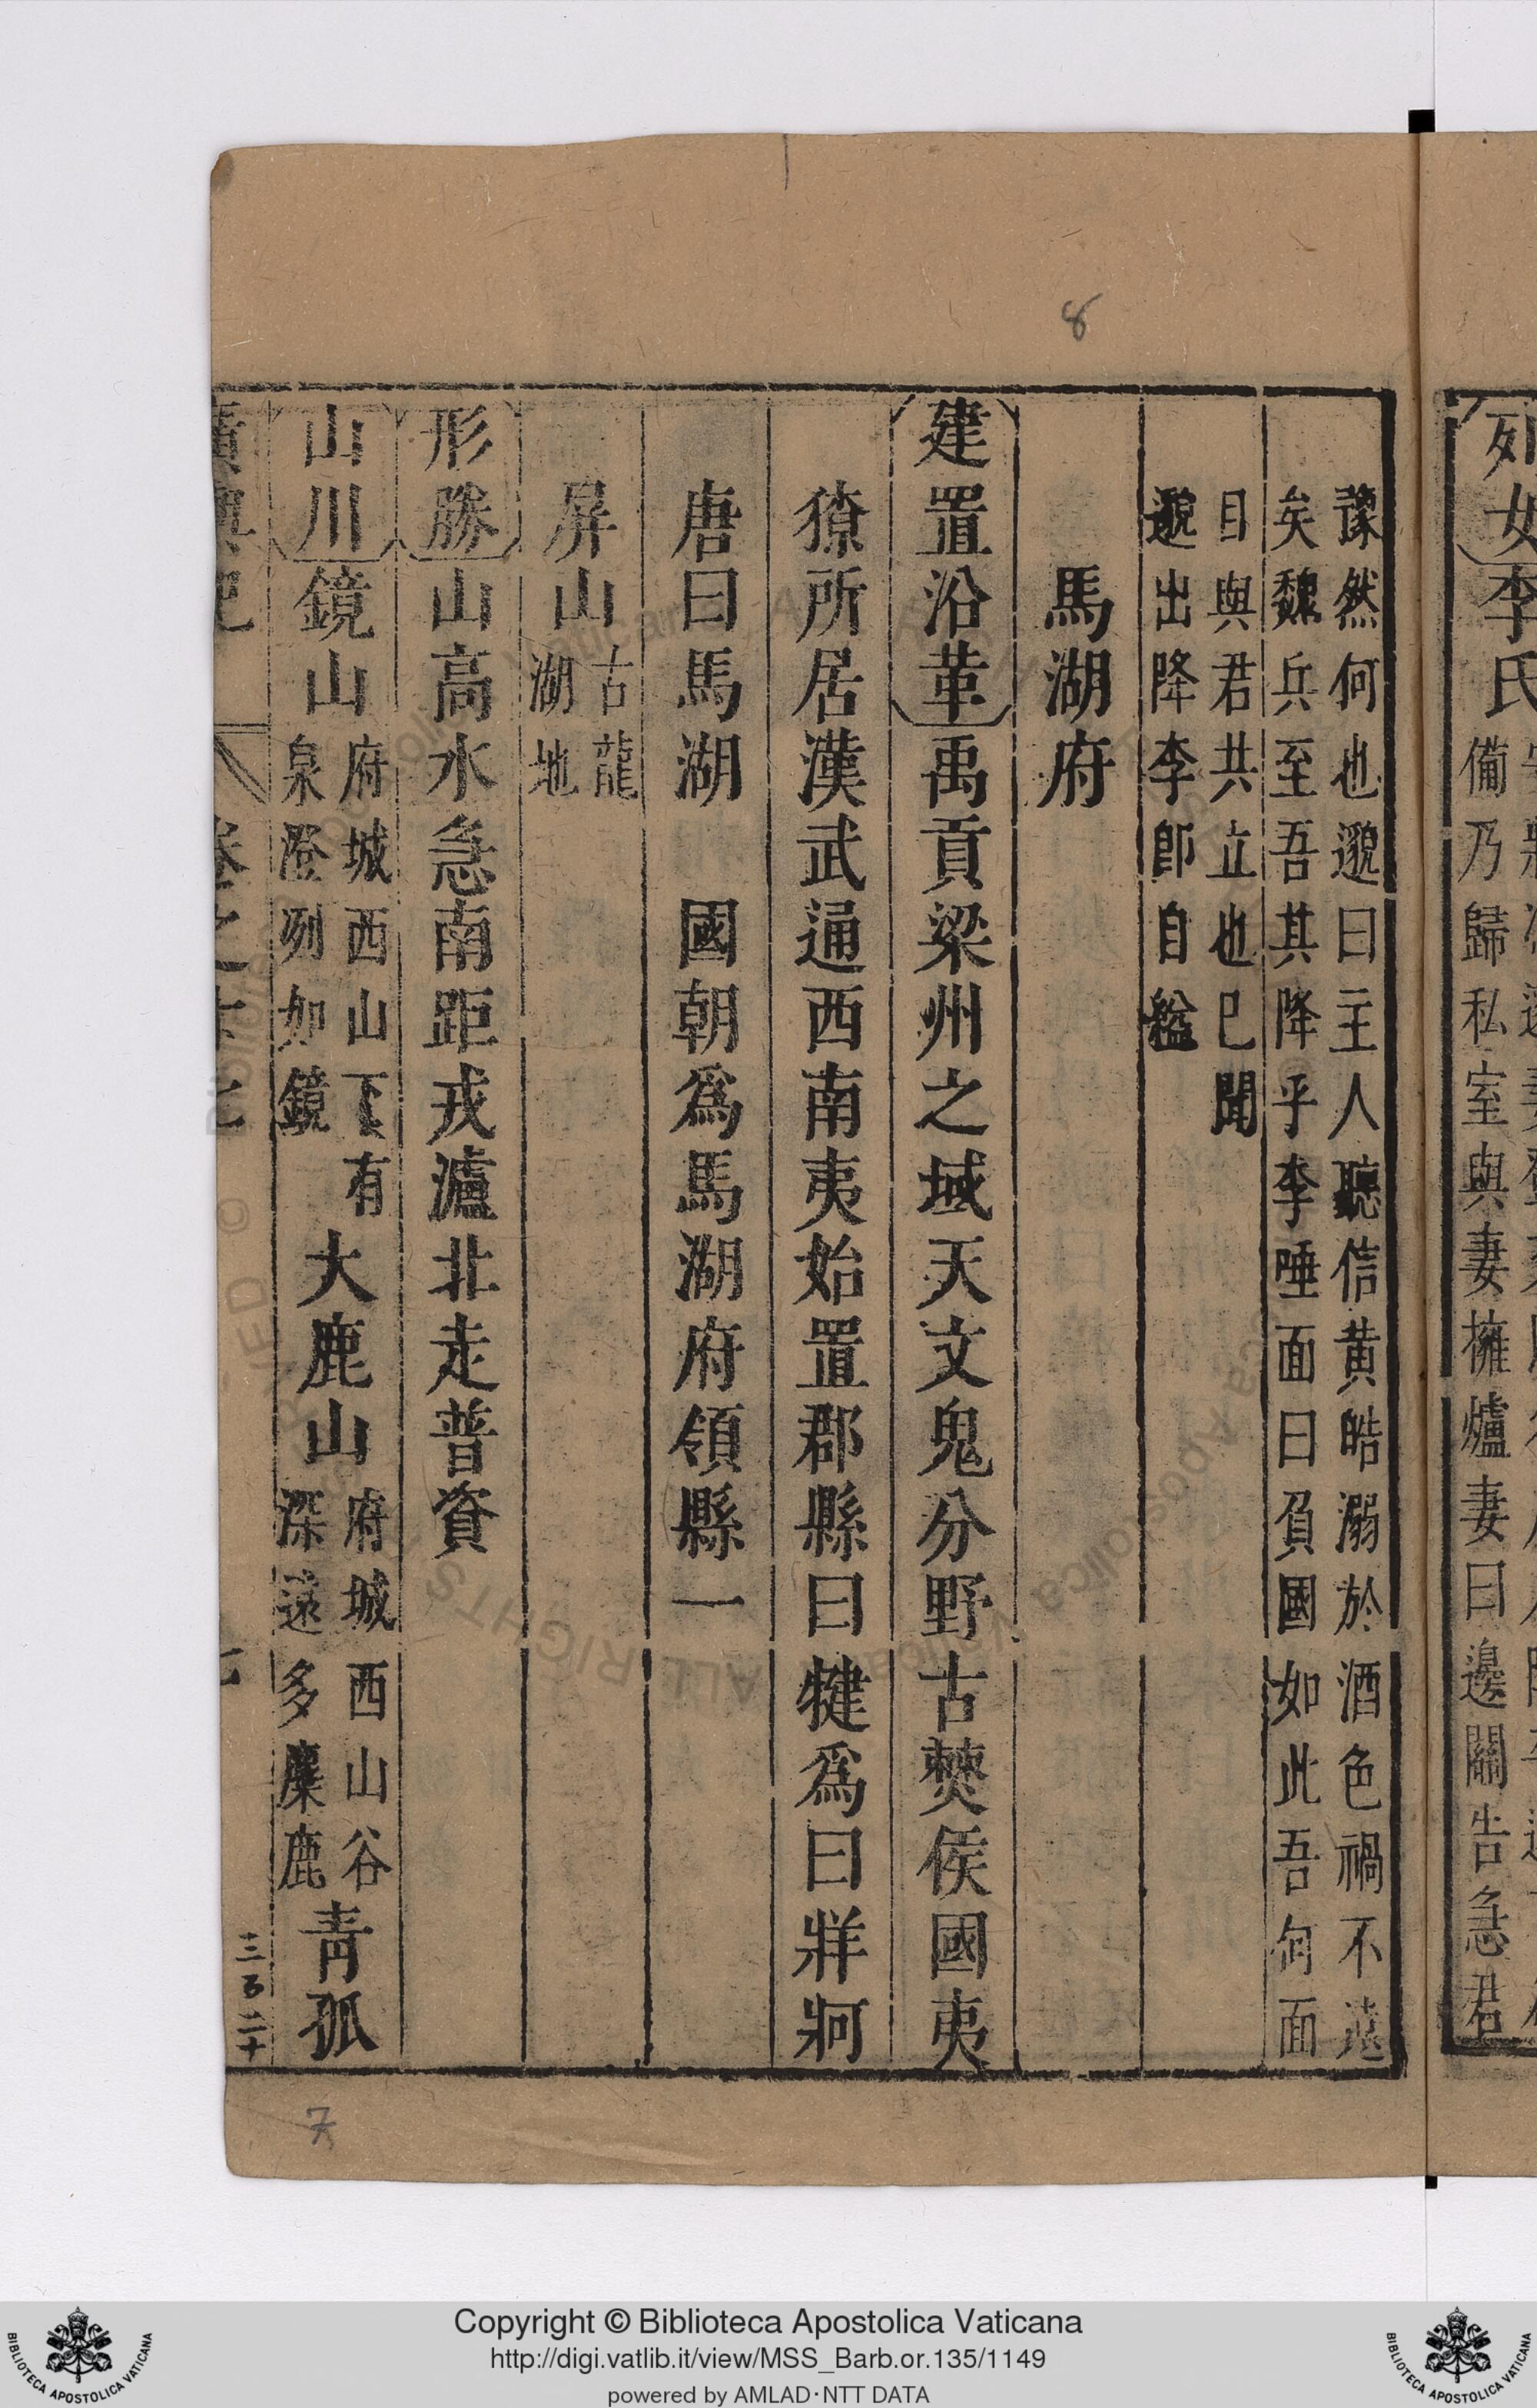 列女李氏
備乃歸私室與妻擁爐妻曰邊關告急君
豫然何也邈曰主人聽信黃皓溺於酒色禍不遠
矣魏兵至吾其降乎李唾面曰負國如此吾何面
目與君共立也已聞
邈出降李卽自縊
馬湖府
建置沿革禹貢梁州之域天文鬼分野古僰侯國夷
獠所居漢武通西南夷始置郡縣曰犍爲曰牂牁
唐曰馬湖 國朝爲馬湖府領縣一
屏山古龍湖地
形勝山高水急南距戎瀘北走普資
山川鏡山府城西山下有泉澄列如鏡大鹿山府城西山谷深遠多麋鹿青孤
三百二十
8
7
Copyright © Biblioteca Apostolica Vaticana
http://digi.vatlib.it/view/MSS_Barb.or.135/1149
powered by AMLAD·NTT DATA
BIBLIOTECA APOSTOLICA VATICANA
BIBLIOTECA APOSTOLICA VATICANA